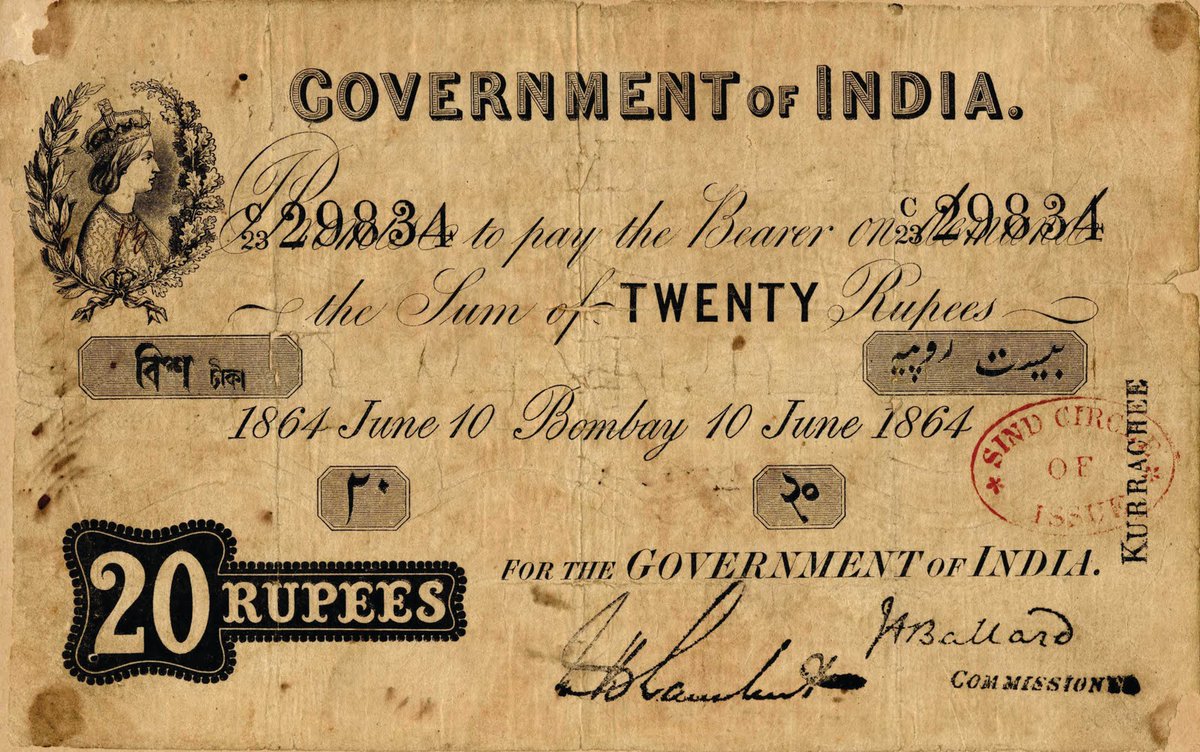 GOVERNMENT OF INDIA.
C 23 29834 C 23 29834
Promise to pay the Bearer on demand
the Sum of TWENTY Rupees
বিশ টাকা بیست روپیہ
1864 June 10 Bombay 10 June 1864
۲۰ २०
SIND CIRCLE
OF
ISSUE
KURRACHEE
20 RUPEES
FOR THE GOVERNMENT OF INDIA.
JABallard
COMMISSIONER